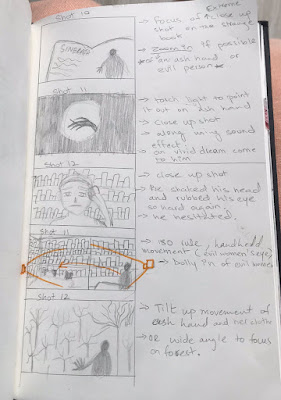 Shot 10
→ Focus of Extreme close up
shot on the strange
book
→ Zoom In if possible
or an ash hand or
evil person
Shot 11
→ torch light to point
it out on ash hand
→ close up shot
→ along using sound
effect.
→ on vivid dream come
to him
Shot 12
→ close up shot
→ He shaked his head
and rubbed his eye
so hard again.
→ He hesitated.
Shot 11
→ 180 wide, handheld
movement (evil women's eye)
→ dolly In of evil
Shot 12
→ Tilt up movement of
ash hand and her cloth
→ OR wide angle to focus
on forest.